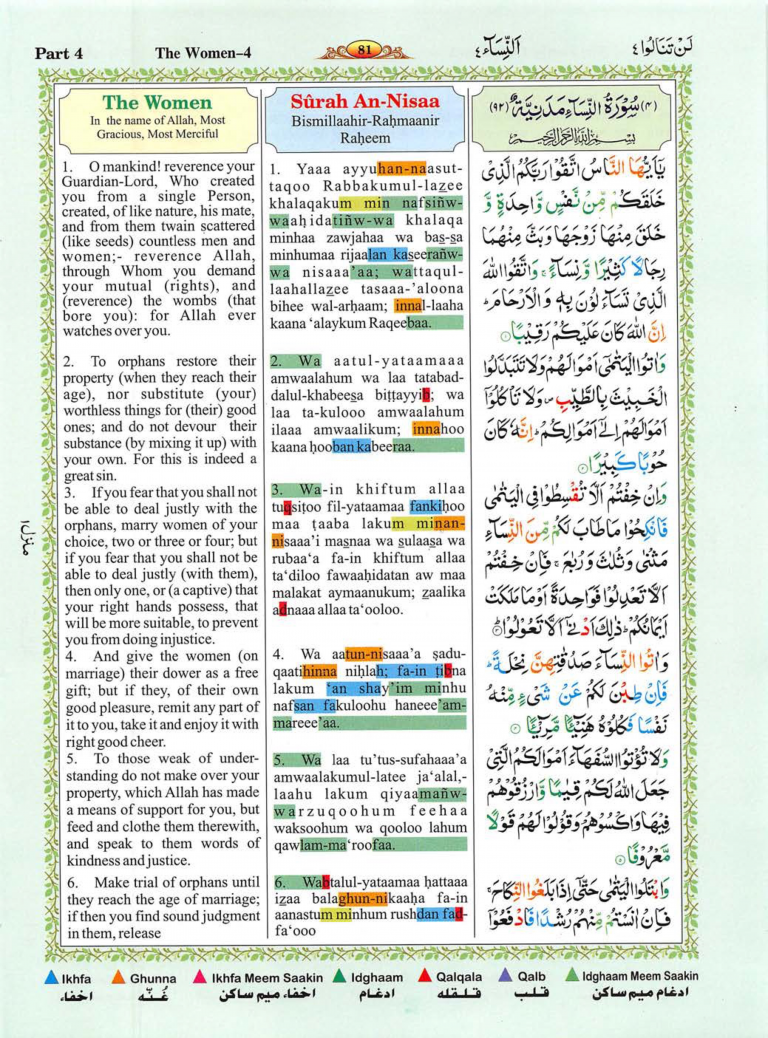 Part 4
The Women–4
81
اَلنِّسَآء ٤
لَنْ تَنَالُوا ٤
The Women
In the name of Allah, Most
Gracious, Most Merciful
1. O mankind! reverence your
Guardian-Lord, Who created
you from a single Person,
created, of like nature, his mate,
and from them twain scattered
(like seeds) countless men and
women;- reverence Allah,
through Whom you demand
your mutual (rights), and
(reverence) the wombs (that
bore you): for Allah ever
watches over you.
2. To orphans restore their
property (when they reach their
age), nor substitute (your)
worthless things for (their) good
ones; and do not devour their
substance (by mixing it up) with
your own. For this is indeed a
great sin.
3. If you fear that you shall not
be able to deal justly with the
orphans, marry women of your
choice, two or three or four; but
if you fear that you shall not be
able to deal justly (with them),
then only one, or (a captive) that
your right hands possess, that
will be more suitable, to prevent
you from doing injustice.
4. And give the women (on
marriage) their dower as a free
gift; but if they, of their own
good pleasure, remit any part of
it to you, take it and enjoy it with
right good cheer.
5. To those weak of under-
standing do not make over your
property, which Allah has made
a means of support for you, but
feed and clothe them therewith,
and speak to them words of
kindness and justice.
6. Make trial of orphans until
they reach the age of marriage;
if then you find sound judgment
in them, release
Sûrah An-Nisaa
Bismillaahir-Raḥmaanir
Raḥeem
1. Yaaa ayyuhan-naasut-
taqoo Rabbakumul-lazee
khalaqakum min nafsiñw-
waaḥidatiñw-wa khalaqa
minhaa zawjahaa wa bas-sa
minhumaa rijaalan kaseerañw-
wa nisaaa'aa; wattaqul-
laahallazee tasaaa-'aloona
bihee wal-arḥaam; innal-laaha
kaana 'alaykum Raqeebaa.
2. Wa aatul-yataamaaa
amwaalahum wa laa tatabad-
dalul-khabeesa biṭṭayyib; wa
laa ta-kulooo amwaalahum
ilaaa amwaalikum; innahoo
kaana ḥooban kabeeraa.
3. Wa-in khiftum allaa
tuqsiṭoo fil-yataamaa fankiḥoo
maa ṭaaba lakum minan-
nisaaa'i masnaa wa sulaasa wa
rubaa'a fa-in khiftum allaa
ta'diloo fawaaḥidatan aw maa
malakat aymaanukum; zaalika
adnaaa allaa ta'ooloo.
4. Wa aatun-nisaaa'a ṣadu-
qaatihinna niḥlah; fa-in ṭibna
lakum 'an shay'im minhu
nafsan fakuloohu haneee'am-
mareee'aa.
5. Wa laa tu'tus-sufahaaa'a
amwaalakumul-latee ja'alal,-
laahu lakum qiyaamañw-
warzuqoohum feehaa
waksoohum wa qooloo lahum
qawlam-ma'roofaa.
6. Wabtalul-yataamaa ḥattaaa
izaa balaghun-nikaaḥa fa-in
aanastum minhum rushdan fad-
fa'ooo
(٤) سُوْرَةُ النِّسَآءِ مَدَنِيَّةٌ (٩٢)
بِسْمِ اللهِ الرَّحْمٰنِ الرَّحِيْمِ
يٰۤاَيُّهَا النَّاسُ اتَّقُوْا رَبَّكُمُ الَّذِيْ
خَلَقَكُمْ مِّنْ نَّفْسٍ وَّاحِدَةٍ وَّ
خَلَقَ مِنْهَا زَوْجَهَا وَبَثَّ مِنْهُمَا
رِجَالًا كَثِيْرًا وَّنِسَآءً ۚ وَاتَّقُوا اللهَ
الَّذِيْ تَسَآءَلُوْنَ بِهٖ وَالْاَرْحَامَ ؕ
اِنَّ اللهَ كَانَ عَلَيْكُمْ رَقِيْبًا ۞
وَاٰتُوا الْيَتٰمٰۤى اَمْوَالَهُمْ وَلَا تَتَبَدَّلُوا
الْخَبِيْثَ بِالطَّيِّبِ ۪ وَلَا تَاْكُلُوْۤا
اَمْوَالَهُمْ اِلٰۤى اَمْوَالِكُمْ ؕ اِنَّهٗ كَانَ
حُوْبًا كَبِيْرًا ۞
وَاِنْ خِفْتُمْ اَلَّا تُقْسِطُوْا فِي الْيَتٰمٰى
فَانْكِحُوْا مَا طَابَ لَكُمْ مِّنَ النِّسَآءِ
مَثْنٰى وَثُلٰثَ وَرُبٰعَ ۚ فَاِنْ خِفْتُمْ
اَلَّا تَعْدِلُوْا فَوَاحِدَةً اَوْ مَا مَلَكَتْ
اَيْمَانُكُمْ ؕ ذٰلِكَ اَدْنٰۤى اَلَّا تَعُوْلُوْا ۞
وَاٰتُوا النِّسَآءَ صَدُقٰتِهِنَّ نِحْلَةً ؕ
فَاِنْ طِبْنَ لَكُمْ عَنْ شَيْءٍ مِّنْهُ
نَفْسًا فَكُلُوْهُ هَنِيْٓـًٔا مَّرِيْٓـًٔا ۞
وَلَا تُؤْتُوا السُّفَهَآءَ اَمْوَالَكُمُ الَّتِيْ
جَعَلَ اللهُ لَكُمْ قِيٰمًا وَّارْزُقُوْهُمْ
فِيْهَا وَاكْسُوْهُمْ وَقُوْلُوْا لَهُمْ قَوْلًا
مَّعْرُوْفًا ۞
وَابْتَلُوا الْيَتٰمٰى حَتّٰۤى اِذَا بَلَغُوا النِّكَاحَ ۚ
فَاِنْ اٰنَسْتُمْ مِّنْهُمْ رُشْدًا فَادْفَعُوْۤا
منزل ١
Ikhfa
Ghunna
Ikhfa Meem Saakin
Idghaam
Qalqala
Qalb
Idghaam Meem Saakin
اخفاء
غُنّه
اخفاء میم ساکن
ادغام
قلقله
قلب
ادغام میم ساکن